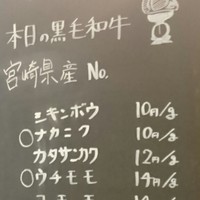 本日の黒毛和牛
宮崎県産 No.
シキンボウ 10円/g
○ナカニク 10円/g
カタサンカク 12円/g
○ウチモモ 14円/g